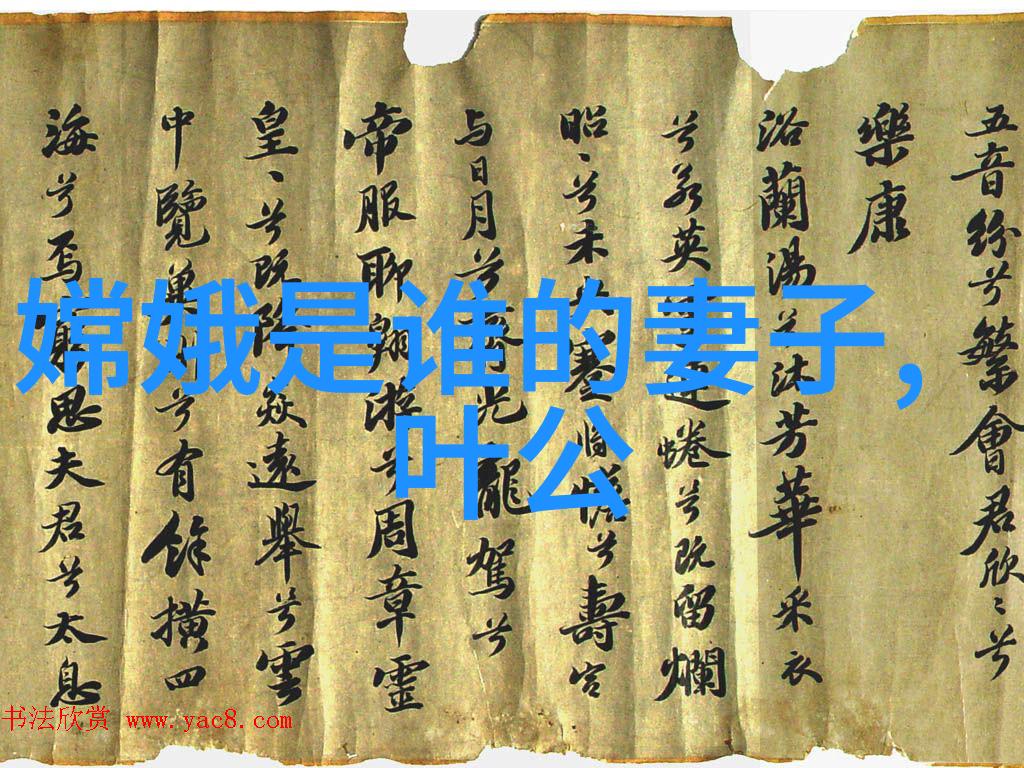 五音紛兮繁會君欣〻兮
樂康
浴蘭湯兮沐芳華采衣
兮若英連蜷兮既留爛
昭〻兮未央蹇將憺兮壽宮
与日月兮齊光龍駕兮
帝服聊翱遊兮周章靈
皇〻兮既降猋遠舉兮雲
中覽冀州兮有餘橫四
海兮焉窮思夫君兮太息
嫦娥是谁的妻子，
叶公
书法欣赏 www.yac8.com